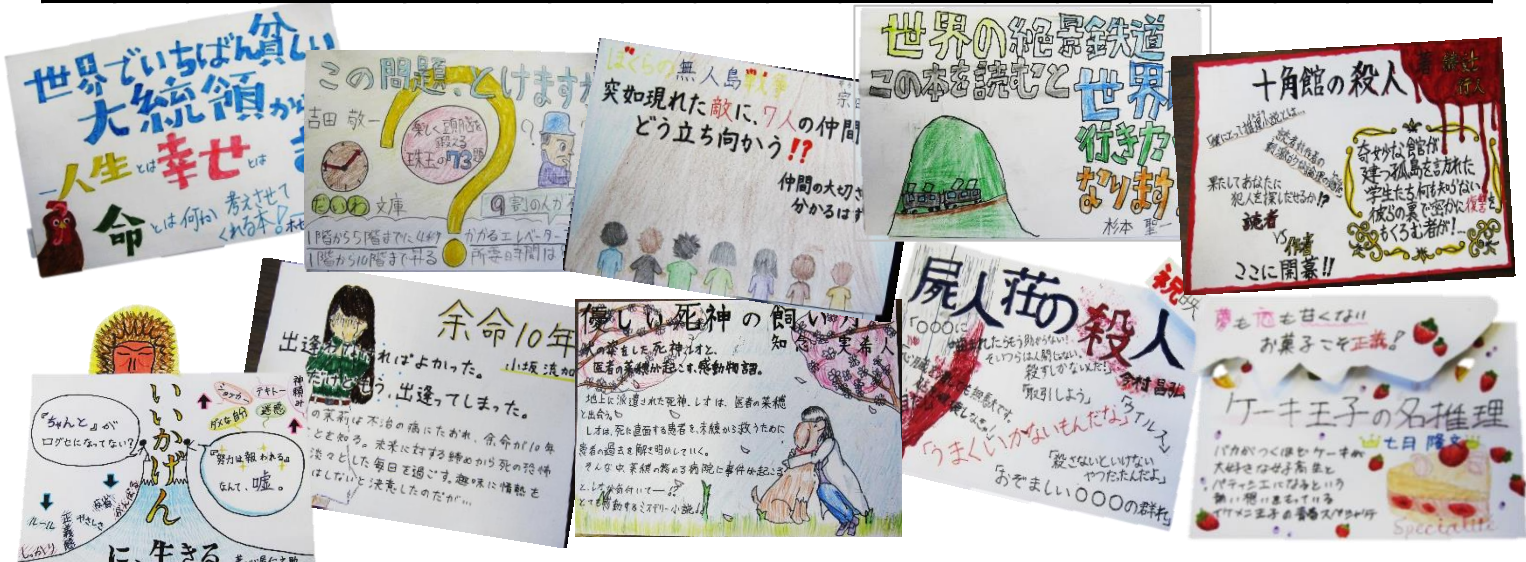 世界でいちばん貧しい
大統領から
人生とは幸せとは
命とは何か考えさせて
くれる本!
この問題、とけますか
吉田 敬一
楽しく頭脳を
鍛える
珠玉の73題
だいわ文庫
9割の人が
1階から5階までに
かかるエレベーター
1階から10階まで昇る
所要時間は
ぼくらの無人島戦争
宗田
突如現れた敵に、7人の仲間
どう立ち向かう!?
仲間の大切さ
分かるはず
世界の絶景鉄道
この本を読むと
世界
行きた
なります
杉本 聖一
十角館の殺人
著 綾辻
行人
読者が作者の
果たしてあなたに
犯人を探しだせるか!?
読者
VS
作者
ここに開幕!!
奇妙な館が
建つ孤島を訪れた
学生たち何も知らない
彼らの裏で密かに復讐を
もくろむ者が!…
いいかげん
に、生きる
『ちゃんと』が
口グセになってない?
『努力は報われる』
なんて、嘘。
テキトー
神頼み
ダメな自分
迷惑
ルール
正義感
やさしさ
しっかり
がんばる
余命10年
小坂 流加
出逢わなければよかった。
だけどもう、出逢ってしまった。
の茉莉は不治の病にたおれ、余命が10年
とを知る。未来に対する諦めから死の恐怖
淡々とした毎日を過ごす。趣味に情熱を
はしないと決意したのだが…
優しい死神の飼い方
知念 実希人
犬の姿をした死神レオと、
医者の菜穂が起こす、感動物語。
地上に派遣された死神、レオは、医者の菜穂
と出会う。
レオは、死に直面する患者を、未練から救うために
患者の過去を解き明かしていく。
そんな中、菜穂の務める病院に事件が起こる
とても感動するミステリー小説
屍人荘の殺人
祝
今村昌弘
「○○○に
そいつらは人間じゃない、
殺すしかないんだ!
「取引しよう」
「うまくいかないもんだな」
「殺さないといけない
やつだったんだよ」
「おぞましい○○○の群れ」
夢も恋も甘くない
お菓子こそ正義!
ケーキ王子の名推理
七月 隆文
バカがつくほどケーキが
大好きな女子高生と
パティシエになるという
熱い想いをもっている
イケメン王子の青春スペシャリテ
Specialite